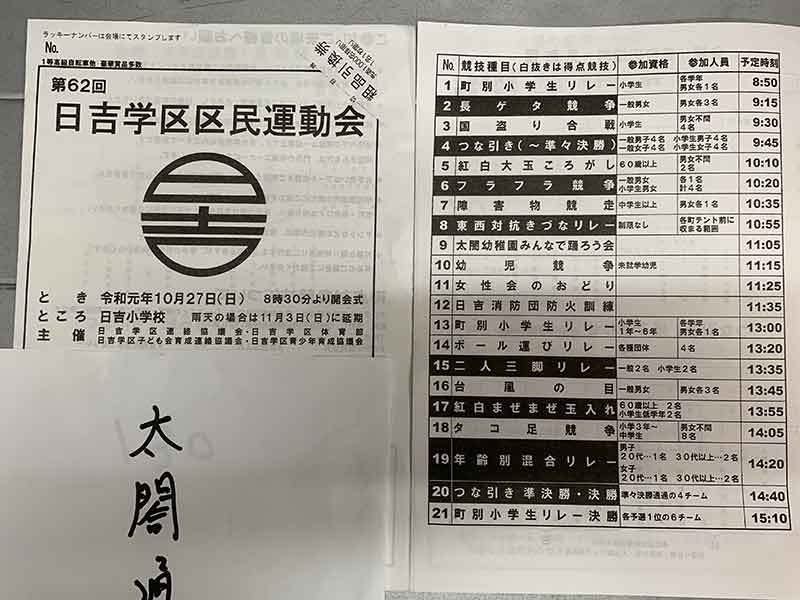 ラッキーナンバーは会場にてスタンプします
No.
1等高級自転車他 豪華賞品多数
粗品引換券
第62回
日吉学区区民運動会
とき 令和元年10月27日(日) 8時30分より開会式
ところ 日吉小学校 雨天の場合は11月3日(日)に延期
主催 日吉学区連絡協議会・日吉学区体育部
日吉学区子ども会育成連絡協議会・日吉学区青少年育成協議会
太閤通
No. 競技種目(白抜きは得点競技) 参加資格 参加人員 予定時刻
1 町別小学生リレー 小学生 各学年 男女各1名 8:50
2 長ゲタ競争 一般男女 男女各3名 9:15
3 国盗り合戦 小学生 男女不問 4名 9:30
4 つな引き(~準々決勝) 一般男子4名 小学生男子4名 一般女子4名 小学生女子4名 9:45
5 紅白大玉ころがし 60歳以上 男女不問 2名 10:10
6 フラフラ競争 一般男女 小学生男女 各1名 計4名 10:20
7 障害物競走 中学生以上 男女各1名 10:35
8 東西対抗きづなリレー 制限なし 各町テント前に収まる範囲 10:55
9 太閤幼稚園みんなで踊ろう会 11:05
10 幼児競争 未就学幼児 11:15
11 女性会のおどり 11:25
12 日吉消防団防火訓練 11:35
13 町別小学生リレー 小学生 1年~6年 各学年 男女各1名 13:00
14 ボール運びリレー 各種団体 4名 13:20
15 二人三脚リレー 一般2名 小学生2名 13:35
16 台風の目 一般男女 男女各3名 13:45
17 紅白まぜまぜ玉入れ 60歳以上 2名 小学生低学年2名 13:55
18 タコ足競争 小学3年~ 中学生 男女不問 8名 14:05
19 年齢別混合リレー 男子 20代…1名 30代以上…2名 女子 20代…1名 30代以上…2名 14:20
20 つな引き準決勝・決勝 準々決勝通過の4チーム 14:40
21 町別小学生リレー決勝 各予選1位の6チーム 15:10